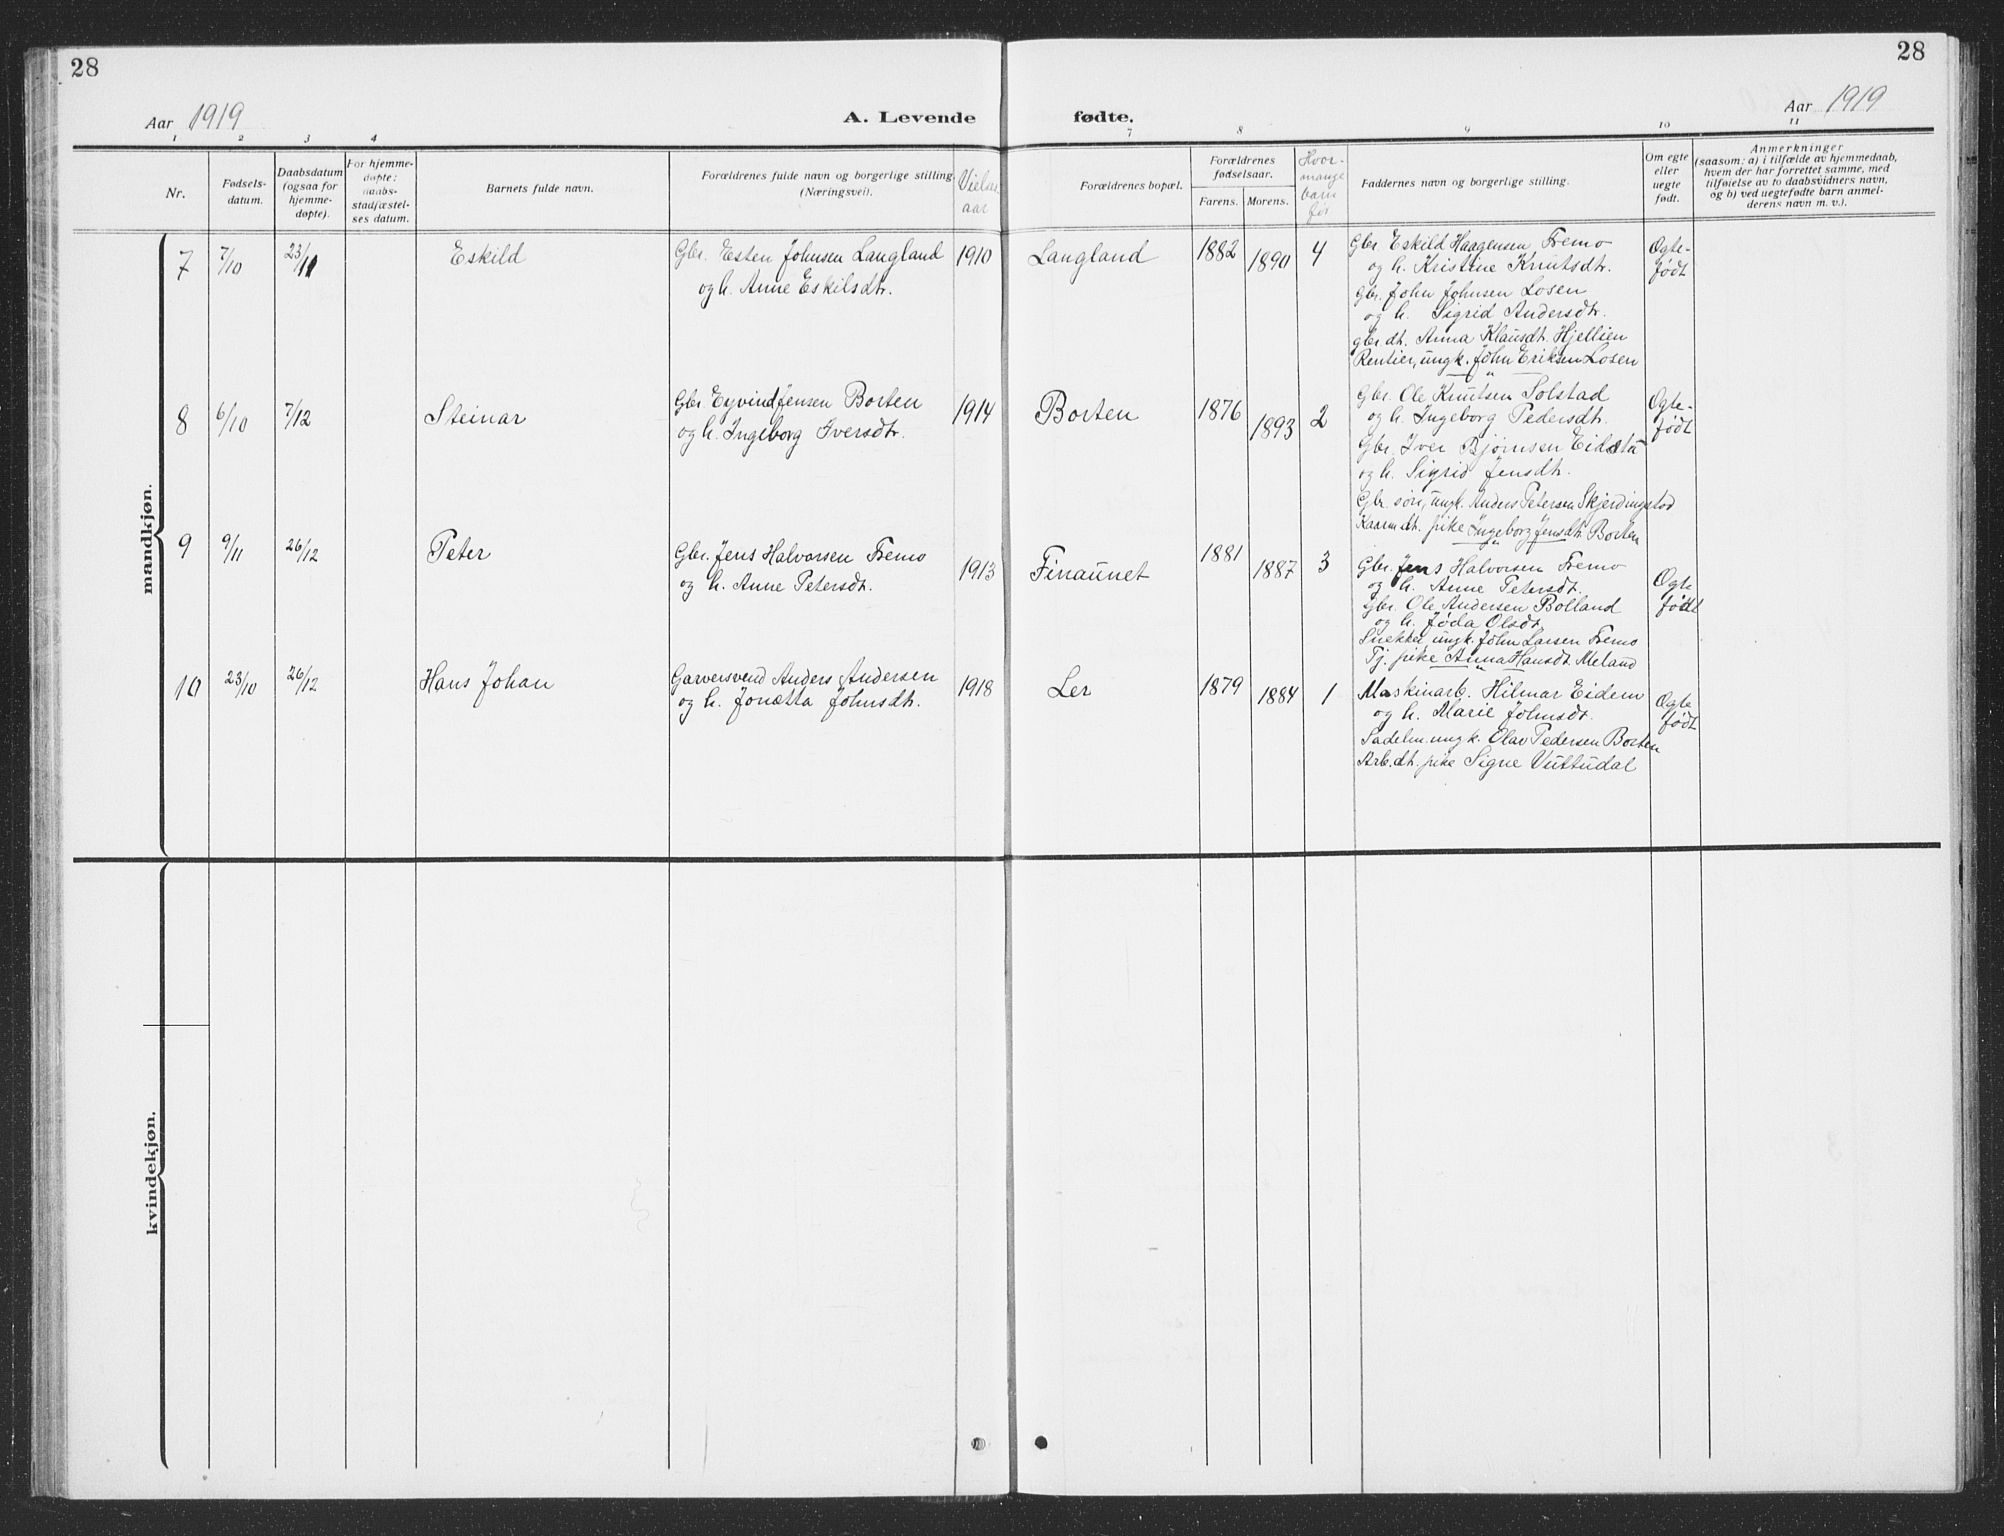 28
28
Aar 1919
A. Levende fødte.
Aar 1919
1 2 3 4 7 8 9 10 11
Nr.
Fødsels-
datum.
Daabsdatum
(ogsaa for
hjemme-
døpte).
For hjemme-
døpte:
daabs-
stadfæstel-
ses datum.
Barnets fulde navn.
Forældrenes fulde navn og borgerlige stilling.
(Næringsvei).
Vielses
aar
Forældrenes bopæl.
Forældrenes
fødselsaar.
Farens. Morens.
Hvor-
mange
barn
før
Faddernes navn og borgerlige stilling.
Om egte
eller
uegte
født.
Anmerkninger
(saasom: a) i tilfælde av hjemmedaab,
hvem der har forrettet samme, med
tilføielse av to daabsvidners navn,
og b) ved uegtefødte barn anmel-
derens navn m. v.).
mandkjøn.
7 7/10 23/11 Eskild
Gbr. Esten Johnsen Langland
og h. Anne Eskilsdtr.
1910 Langland 1882 1890 4
Gbr. Eskild Haagensen Fremo
og h. Kristine Knutsdtr.
Gbr. John Johnsen Losen
og h. Sigrid Andersdtr.
gbr. dt. Anna Klausdt. Hjellien
Rentier, ungk. John Eriksen Losen
Ogte-
født
8 6/10 7/12 Steinar
Gbr. Eyvind Jensen Borten
og h. Ingeborg Iversdtr.
1914 Borten 1876 1893 2
Gbr. Ole Knutsen Solstad
og h. Ingeborg Pedersdtr.
Gbr. Iver Bjørnsen Eidstu
og h. Sigrid Jensdtr.
Gbr. søn, ungk. Anders Petersen Skjerdingstad
Kaarm dt. pike Ingeborg Jensdt. Borten
Ogte-
født
9 9/11 26/12 Peter
Gbr. Jens Halvorsen Fremo
og h. Anne Petersdtr.
1913 Finaunet 1881 1887 3
Gbr. Jens Halvorsen Fremo
og h. Anne Petersdt.
Gbr. Ole Andersen Bolland
og h. Jøda Olsdt.
Snekker ungk. John Larsen Fremo
Tj. pike Anna Hansdt. Meland
Ogte
født
10 23/10 26/12 Hans Johan
Garversvend Anders Andersen
og h. Jonetta Johnsdtr.
1918 Ler 1879 1884 1
Maskinarb. Hilmar Eidem
og h. Marie Johnsdt.
Sadelm. ungk. Olav Pedersen Borten
Arb. dt. pike Signe Vuttudal
Ogte
født
kvindekjøn.